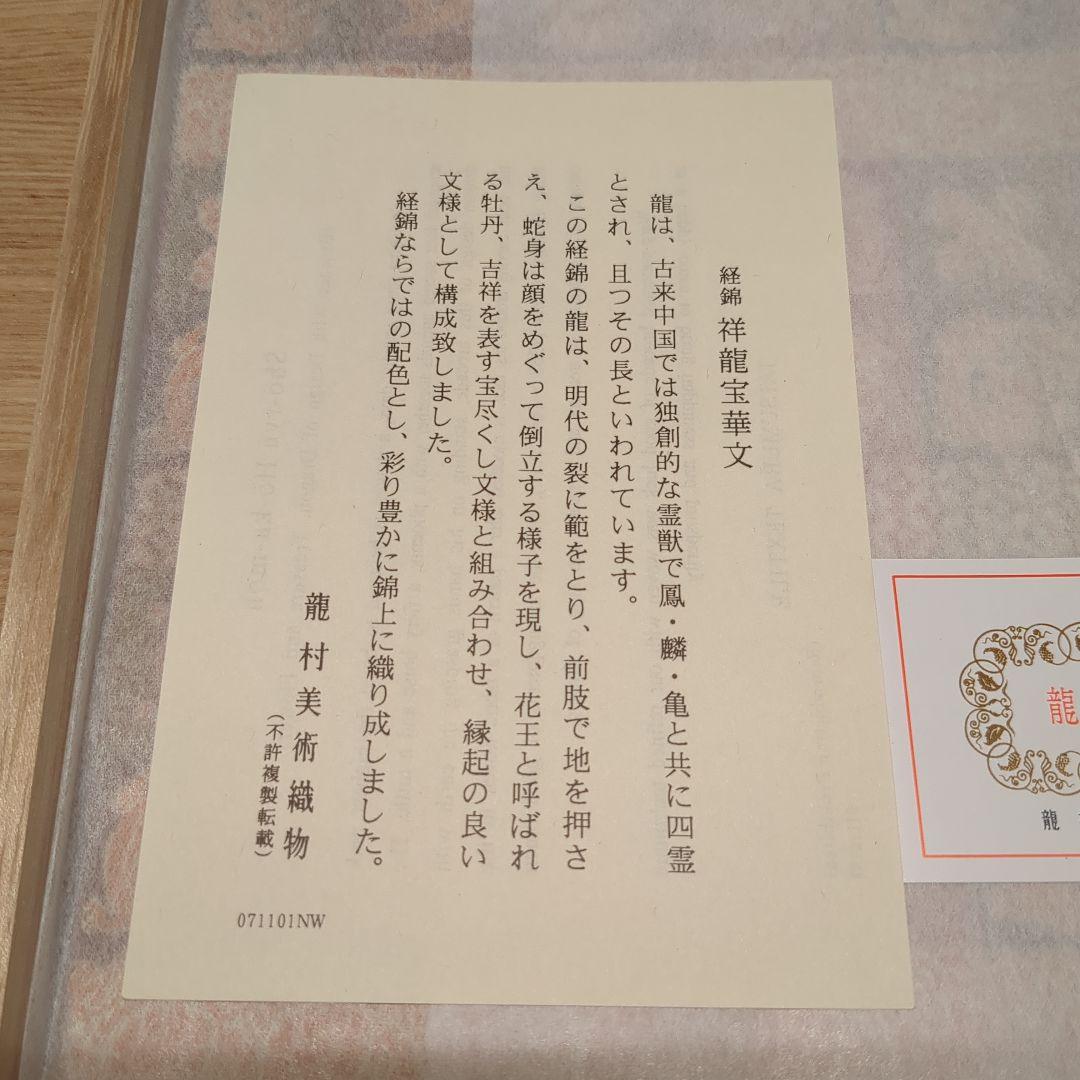 経錦 祥龍宝華文
龍は、古来中国では独創的な霊獣で鳳・麟・亀と共に四霊
とされ、且つその長といわれています。
この経錦の龍は、明代の裂に範をとり、前肢で地を押さ
え、蛇身は顔をめぐって倒立する様子を現し、花王と呼ばれ
る牡丹、吉祥を表す宝尽くし文様と組み合わせ、縁起の良い
文様として構成致しました。
経錦ならではの配色とし、彩り豊かに錦上に織り成しました。
龍村美術織物
（不許複製転載）
071101NW
龍
龍